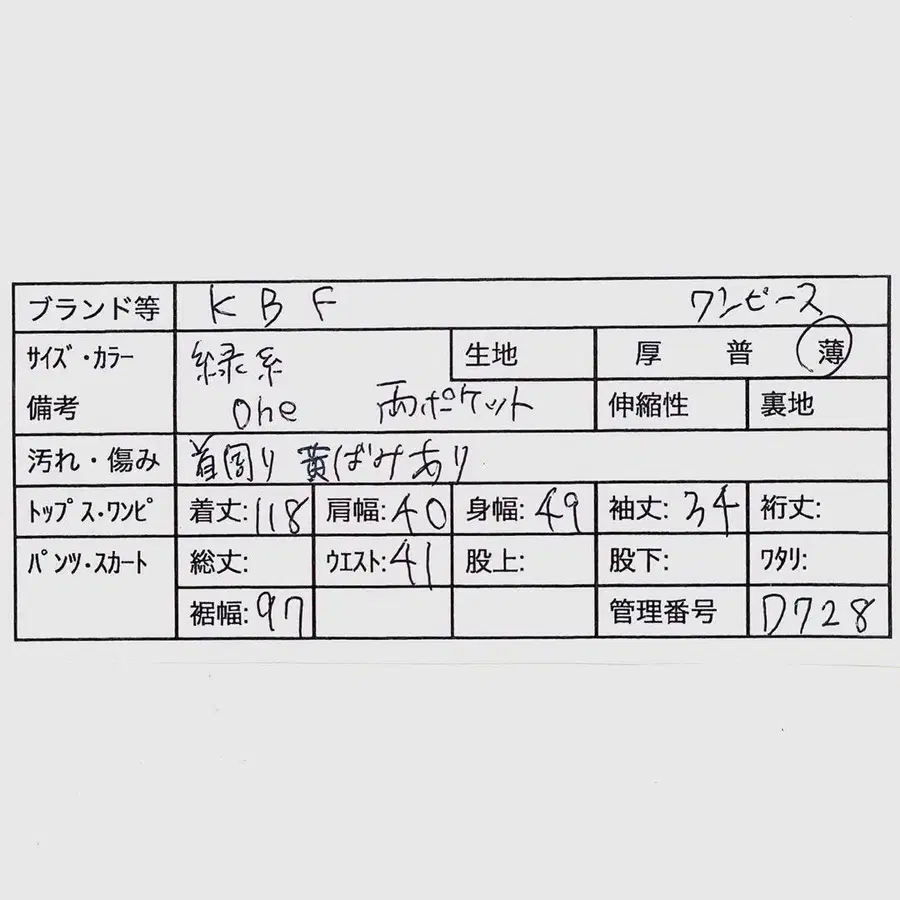 ブランド等 KBF ワンピース
ｻｲｽﾞ・ｶﾗｰ 緑系 生地 厚 普 薄
備考 One 両ポケット 伸縮性 裏地
汚れ・傷み 首周り 黄ばみあり
ﾄｯﾌﾟｽ・ﾜﾝﾋﾟ 着丈:118 肩幅:40 身幅:49 袖丈:34 裄丈:
ﾊﾟﾝﾂ・ｽｶｰﾄ 総丈: ｳｴｽﾄ:41 股上: 股下: ﾜﾀﾘ:
裾幅:97 管理番号 D728